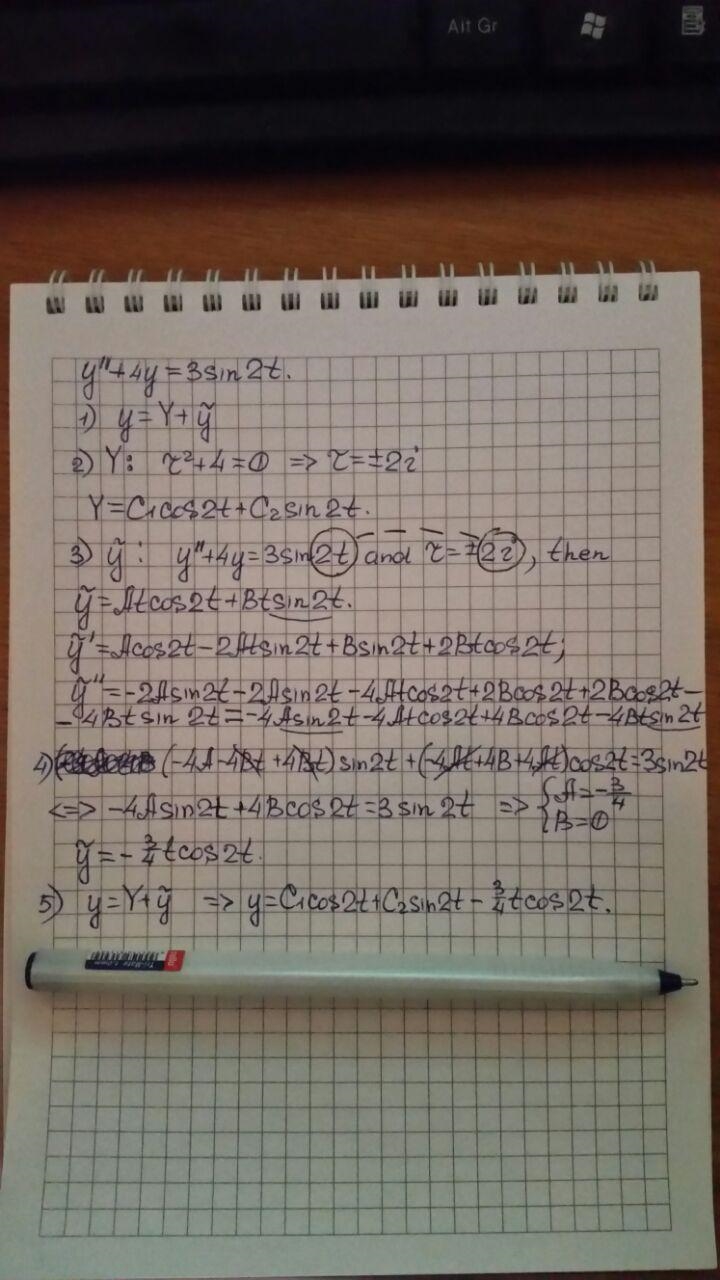 Alt Gr
y''+4y=3sin2t.
1) y=Y+ỹ
2) Y: r²+4=0 => r=±2i
Y=C₁cos2t+C₂sin2t.
3) ỹ: y''+4y=3sin2t and r=±2i, then
ỹ=Atcos2t+Btsin2t.
ỹ'=Acos2t-2Atsin2t+Bsin2t+2Btcos2t;
ỹ''=-2Asin2t-2Asin2t-4Atcos2t+2Bcos2t+2Bcos2t-
-4Btsin2t=-4Asin2t-4Atcos2t+4Bcos2t-4Btsin2t
4) (-4A-4Bt+4Bt)sin2t+(-4At+4B+4At)cos2t=3sin2t
<=> -4Asin2t+4Bcos2t=3sin2t => { A=-3/4
B=0
ỹ=-3/4tcos2t.
5) y=Y+ỹ => y=C₁cos2t+C₂sin2t-3/4tcos2t.